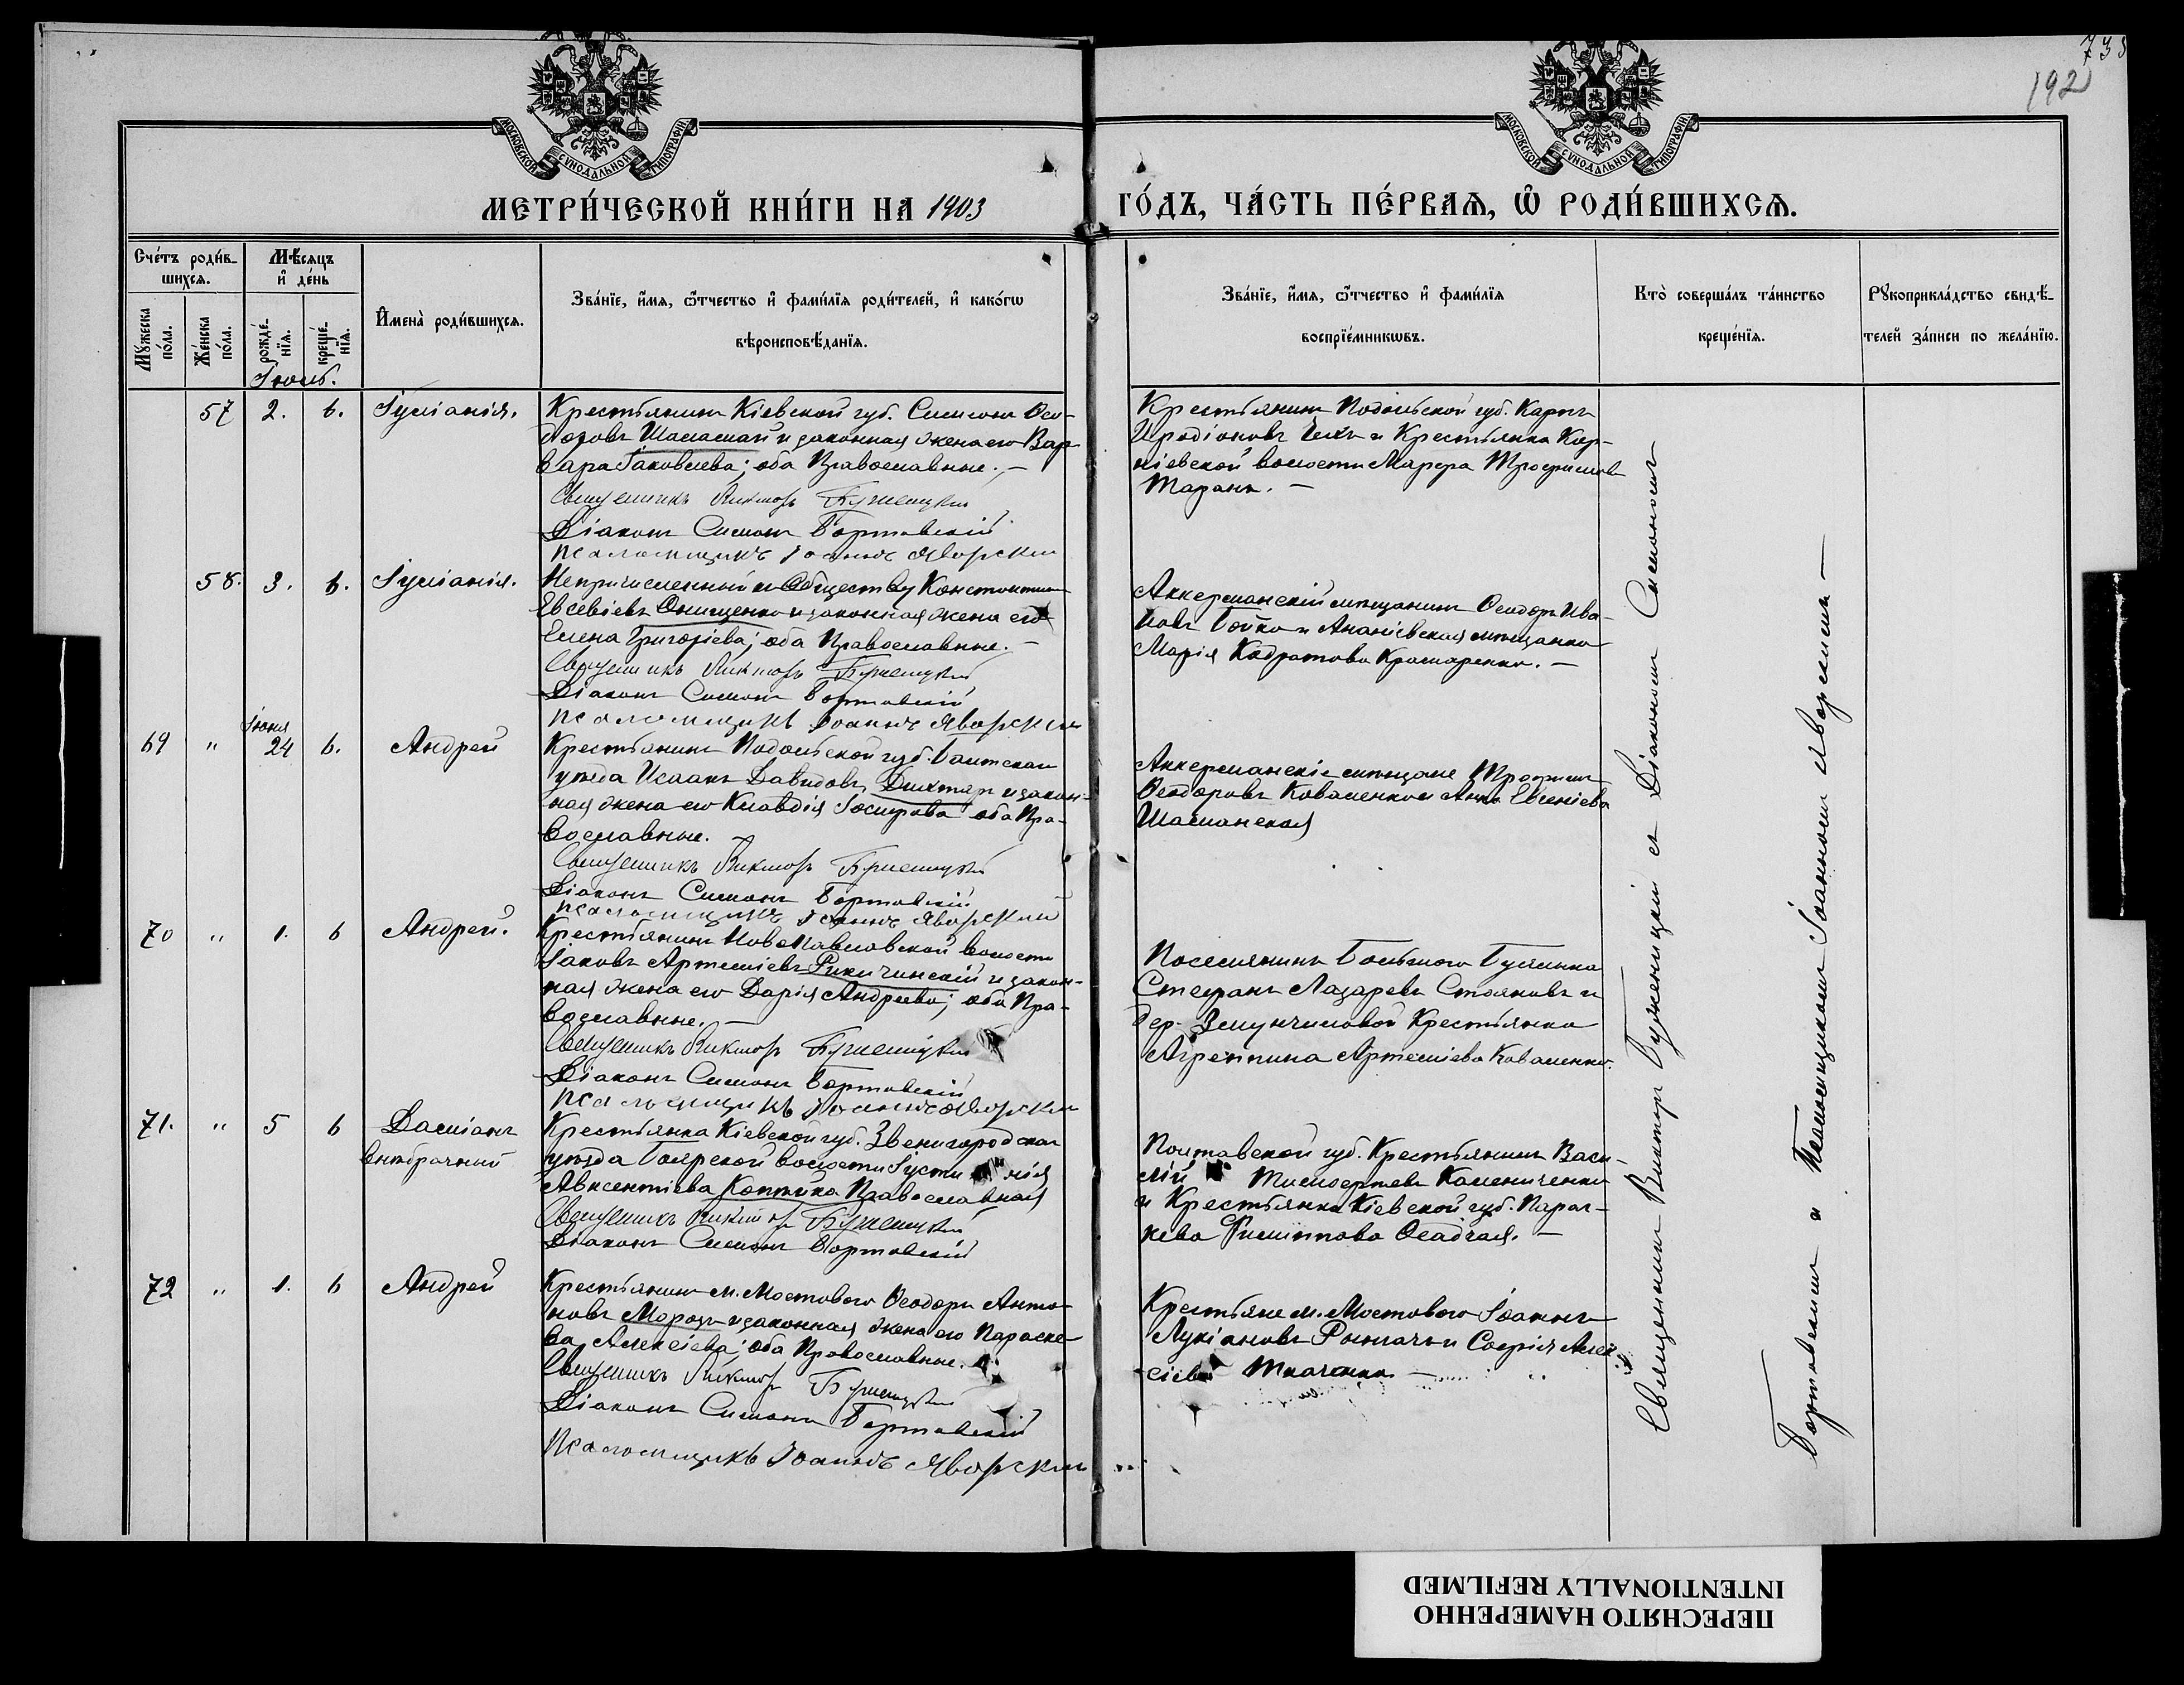 738
192
МОСКОВСКОЙ СУНОДАЛЬНОЙ ТИПОГРАФІИ
МОСКОВСКОЙ СУНОДАЛЬНОЙ ТИПОГРАФІИ
МЕТРИ́ЧЕСКОЙ КНИ́ГИ НА 1903
ГО́ДЪ, ЧА́СТЬ ПЕ́РВАѦ, Ѡ҆ РОДИ́ВШИХСѦ.
Сче́тъ роди́в-
шихсѧ.
Мѣ́сѧцъ
и҆ де́нь
Мꙋ́жеска
по́ла.
Же́нска
по́ла.
рожде́-
нїѧ.
креще́-
нїѧ.
И҆мена̀ роди́вшихсѧ.
Зва́нїе, и҆́мѧ, ѻ҆́тчество и҆ фами́лїѧ роди́телей, и҆ како́гѡ
вѣроисповѣ́данїѧ.
Зва́нїе, и҆́мѧ, ѻ҆́тчество и҆ фами́лїѧ
воспрїе́мникѡвъ.
Кто̀ соверша́лъ та́инство
креще́нїѧ.
Рꙋкоприкла́дство свидѣ́-
телей за́писи по жела́нїю.
Іюль.
57 2. 6. Іуліанія.
Крестьянинъ Кіевской губ. Симеонъ Ѳео-
доровъ и законная жена его Вар-
вара Іаковлева; оба Православные. –
Священникъ Викторъ Буженицкій
Діаконъ Симеонъ Бортовскій
Псаломщикъ Іоаннъ Яворскій
Крестьянинъ Подольской губ. Карпъ
Иродіоновъ и Крестьянка
волости Марѳа Трофимова
Таранъ. –
58. 3. 6. Іуліанія.
Непричисленный къ Обществу Константинъ
Евсевіевъ Онищенко и законная жена его
Елена Григоріева; оба Православные. –
Священникъ Викторъ Буженицкій
Діаконъ Симеонъ Бортовскій
Псаломщикъ Іоаннъ Яворскій
Аккерманскій мѣщанинъ Ѳеодоръ Ива-
новъ Бойко и Ананіевская мѣщанка
Марія Кодратова Крамаренко. –
69 " Іюня 24 6. Андрей
Крестьянинъ Подольской губ. Балтскаго
уѣзда Исаакъ Давидовъ Дихтяръ и закон-
ная жена его Клавдія Іосифова оба Пра-
вославные.
Священникъ Викторъ Буженицкій
Діаконъ Симеонъ Бортовскій
Псаломщикъ Іоаннъ Яворскій
Аккерманскіе мѣщане Трофимъ
Ѳеодоровъ Коваленко и Анна Евгеніева
70 " 1. 6 Андрей.
Крестьянинъ Новопавловской волости
Іаковъ Артеміевъ и закон-
ная жена его Дарія Андреева; оба Пра-
вославные. –
Священникъ Викторъ Буженицкій
Діаконъ Симеонъ Бортовскій
Псаломщикъ Іоаннъ Яворскій
Поселянинъ Большого Буялыка
Стефанъ Лазаревъ Стояновъ и
дер. Крестьянка
Агриппина Артеміева Коваленко.
71. " 5 6 Даміанъ
внѣбрачный
Крестьянка Кіевской губ. Звенигородскаго
уѣзда Боярской волости Іусти нія
Авксентіева Коптѣва Православная
Священникъ Викторъ Буженицкій
Діаконъ Симеонъ Бортовскій
Полтавской губ. Крестьянинъ Васи-
лій Тимоѳеевъ Каменченко
и Крестьянка Кіевской губ. Парас-
кева Филиппова Осадчая. –
72 " 1. 6 Андрей
Крестьянинъ м. Мостового Ѳеодоръ Анто-
новъ Морозъ и законная жена его Параске-
ва Алексіева; оба Православные.
Священникъ Викторъ Буженицкій
Діаконъ Симеонъ Бортовскій
Псаломщикъ Іоаннъ Яворскій
Крестьяне м. Мостового Іоаннъ
Лукіановъ и Софія Алек-
сіева Ткаченко –
Священникъ Викторъ Буженицкій съ Діакономъ Симеономъ
Бортовскимъ и Псаломщикомъ Іоанномъ Яворскимъ –
ПЕРЕСНЯТО НАМЕРЕННО
INTENTIONALLY REFILMED